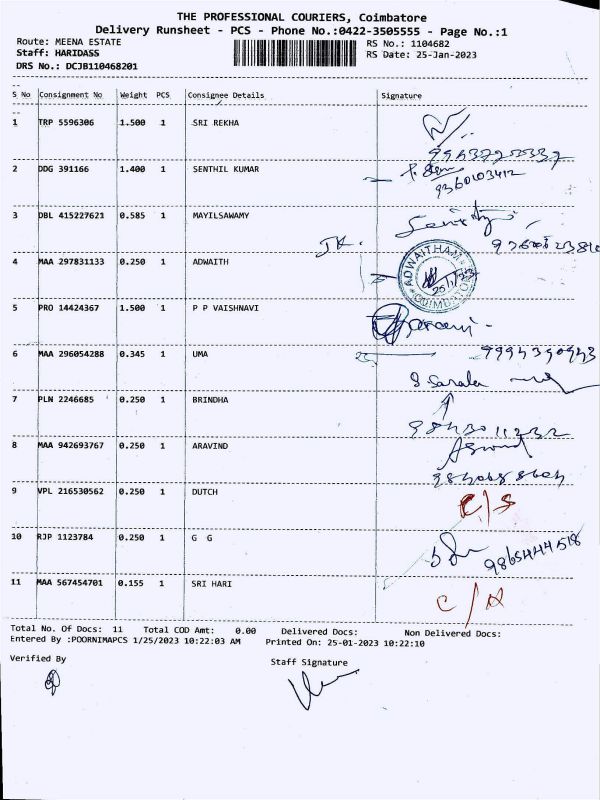 THE PROFESSIONAL COURIERS, Coimbatore
Delivery Runsheet - PCS - Phone No.:0422-3505555 - Page No.:1
Route: MEENA ESTATE
RS No.: 1104682
Staff: HARIDASS
RS Date: 25-Jan-2023
DRS No.: DCJB110468201
S No Consignment No Weight PCS Consignee Details Signature
1 TRP 5596306 1.500 1 SRI REKHA
2 DDG 391166 1.400 1 SENTHIL KUMAR
9360103412
3 DBL 415227621 0.585 1 MAYILSAWAMY
4 MAA 297831133 0.250 1 ADWAITH
ADWAITHAM
COIMBATORE
5 PRO 14424367 1.500 1 P P VAISHNAVI
6 MAA 296054288 0.345 1 UMA
9994390943
S Sarala
7 PLN 2246685 0.250 1 BRINDHA
9843011232
8 MAA 942693767 0.250 1 ARAVIND
9 VPL 216530562 0.250 1 DUTCH
C/S
10 RJP 1123784 0.250 1 G G
9865444518
11 MAA 567454701 0.155 1 SRI HARI
C/A
Total No. Of Docs: 11 Total COD Amt: 0.00 Delivered Docs: Non Delivered Docs:
Entered By :POORNIMAPCS 1/25/2023 10:22:03 AM Printed On: 25-01-2023 10:22:10
Verified By
Staff Signature